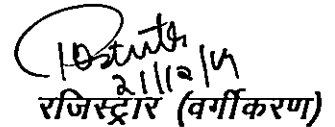 21/12/19
रजिस्ट्रार (वर्गीकरण)